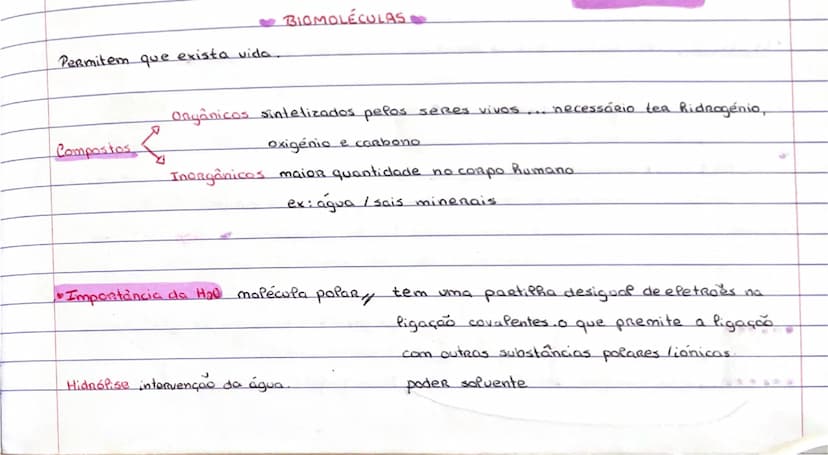 BIOMOLÉCULAS
Permitem que exista vida.
Orgânicos sintelizados pelos seres vivos ... necessário ter hidrogénio,
oxigénio e carbono
Compostos
Inorgânicos maior quantidade no corpo humano
ex: água / sais minerais
•Importância da H2O molécula polar,, tem uma partilha desigual de eletroẽs na
ligação covalentes. o que premite a ligação
com outras substâncias polares / iónicas.
Hidrólise intervenção da água. poder solvente